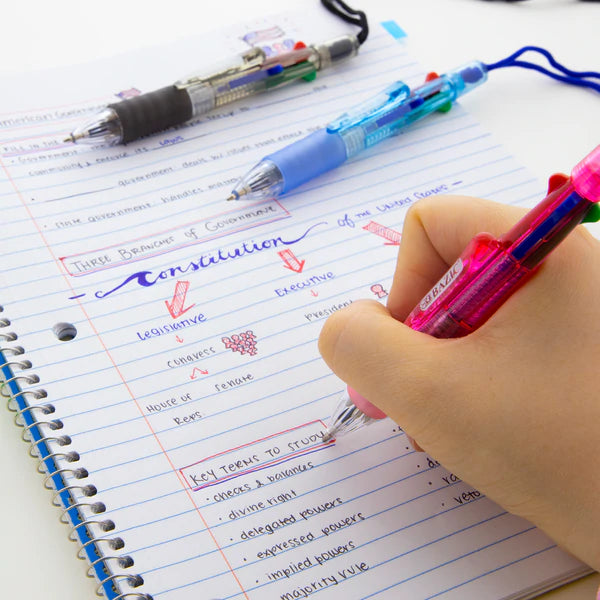 American Govern
FILL IN THE
Government
community & enforce its laws
government deals w/ issues that affect the
state government handles matters
THREE BRANCHES OF GOVERNMENT
Constitution of the United States
Legislative
Executive
Congress
President
House of Reps
Senate
BAZIC
KEY TERMS TO STUDY
• checks & balances
• divine right
• delegated powers
• expressed powers
• implied powers
majority rule
• veto